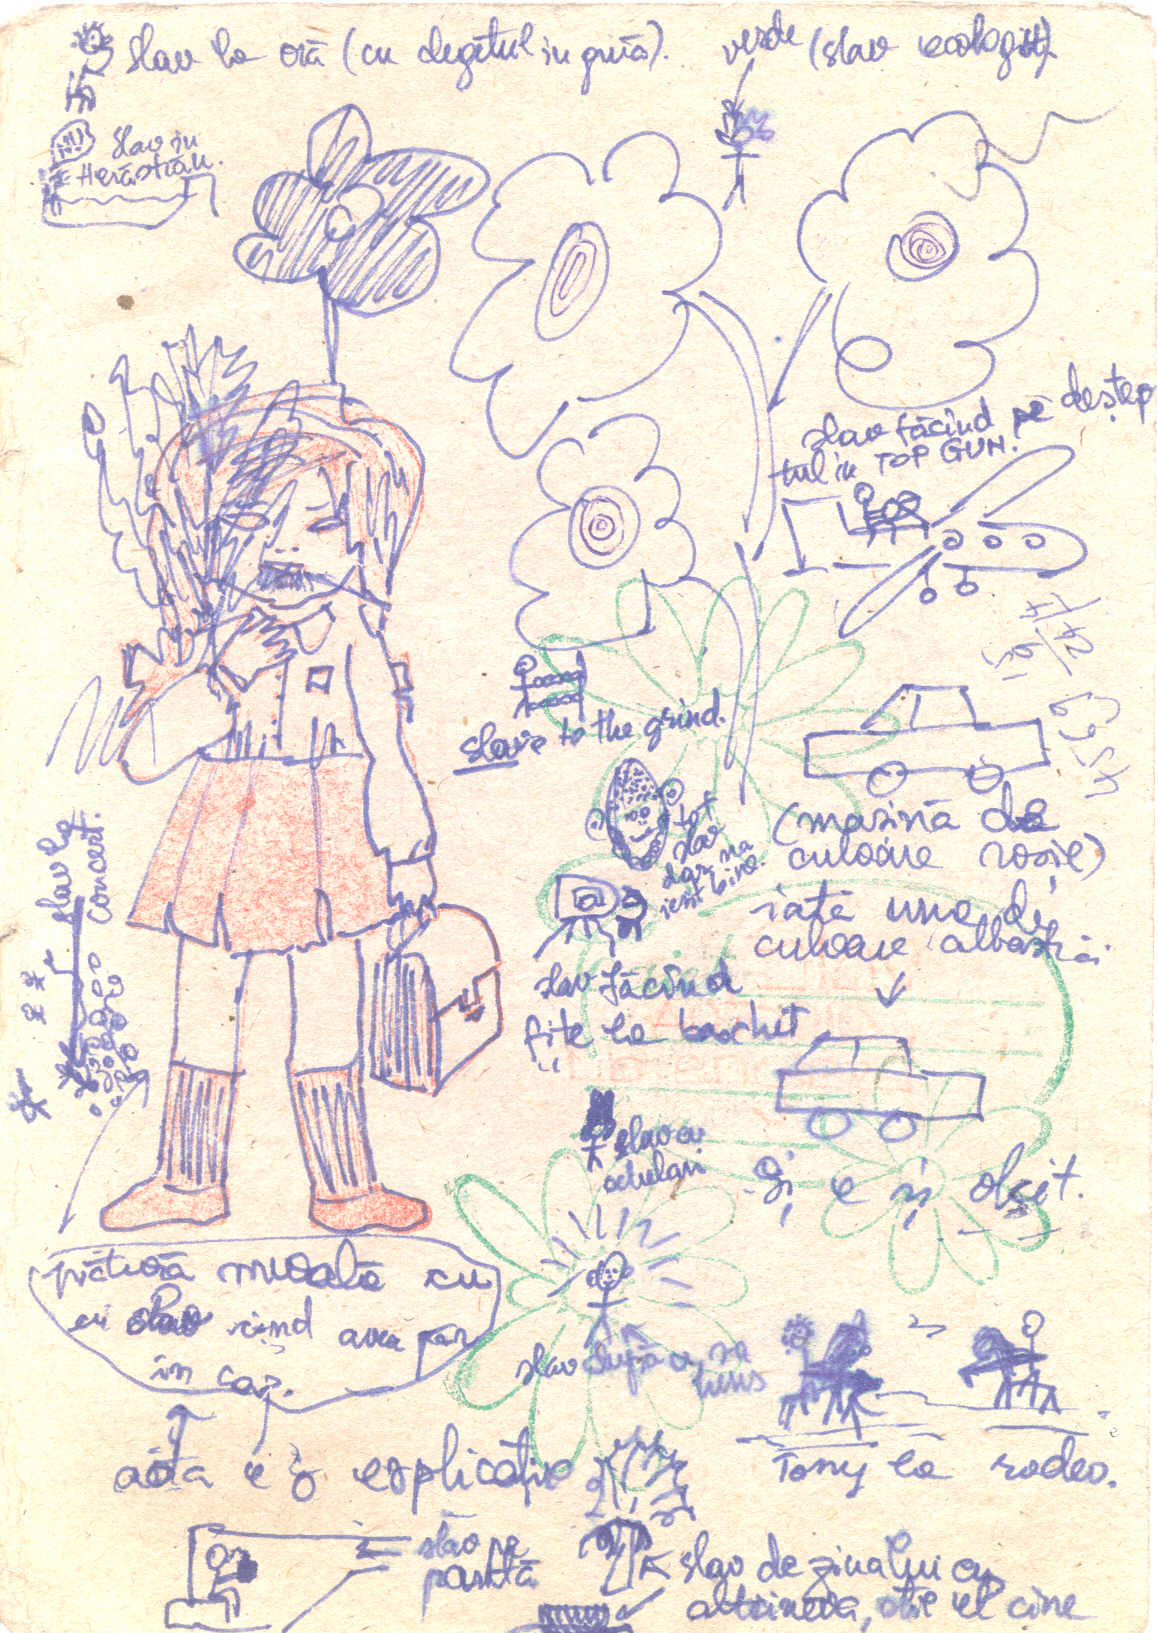 slav la oră (cu degetul in gură).
verde (slav ecologist).
slav in
Herăstrău.
slav făcînd pe deștep
tul in TOP GUN.
slave to the grind.
tot
slav
dar nu
bine.
(mașină de
culoare roșie)
iată una de
culoare albastră.
slav făcînd
fite la
slav la
concert.
4563
slav cu
ochelari
Și e și
pictură murală cu
slav cînd avea păr
in cap.
slav după ce
asta e o explicație
Tony la rodeo.
slav pe
slav de ziua lui cu
cine